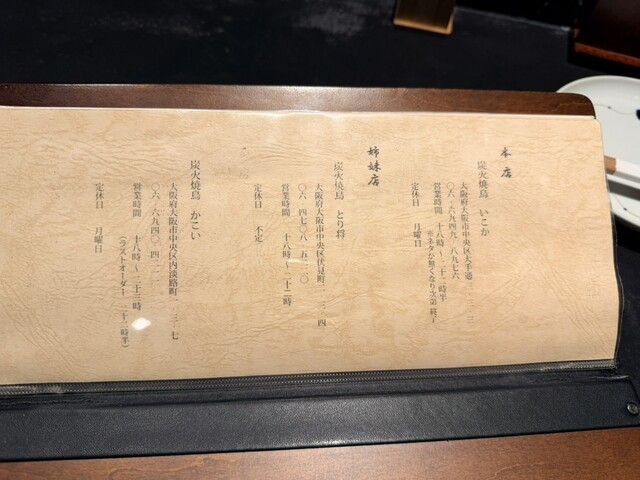 本店
炭火焼鳥 いこか
大阪府大阪市中央区大手通
〇六‐六九四九‐八九七六
営業時間 十八時～二十二時半
※ネタが無くなり次第終了
定休日 月曜日
姉妹店
炭火焼鳥 とり将
大阪府大阪市中央区伏見町
営業時間 十八時～二十二時
定休日 不定
炭火焼鳥 かこい
大阪府大阪市中央区内淡路町
営業時間 十八時～二十三時
(ラストオーダー 二十二時半)
定休日 月曜日